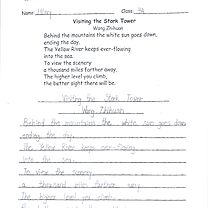 Name: Class: 3A
Visiting the Stork Tower
Wang Zhihuan
Behind the mountains the white sun goes down,
ending the day.
The Yellow River keeps ever-flowing
into the sea.
To view the scenery
a thousand miles farther away,
The higher level you climb,
the better sight there will be.
Visiting the Stork Tower
Wang Zhihuan
Behind the mountains the white sun goes down
ending the day.
The Yellow River keeps ever-flowing
into the sea.
To view the scenery
a thousand miles farther away
The higher level you climb